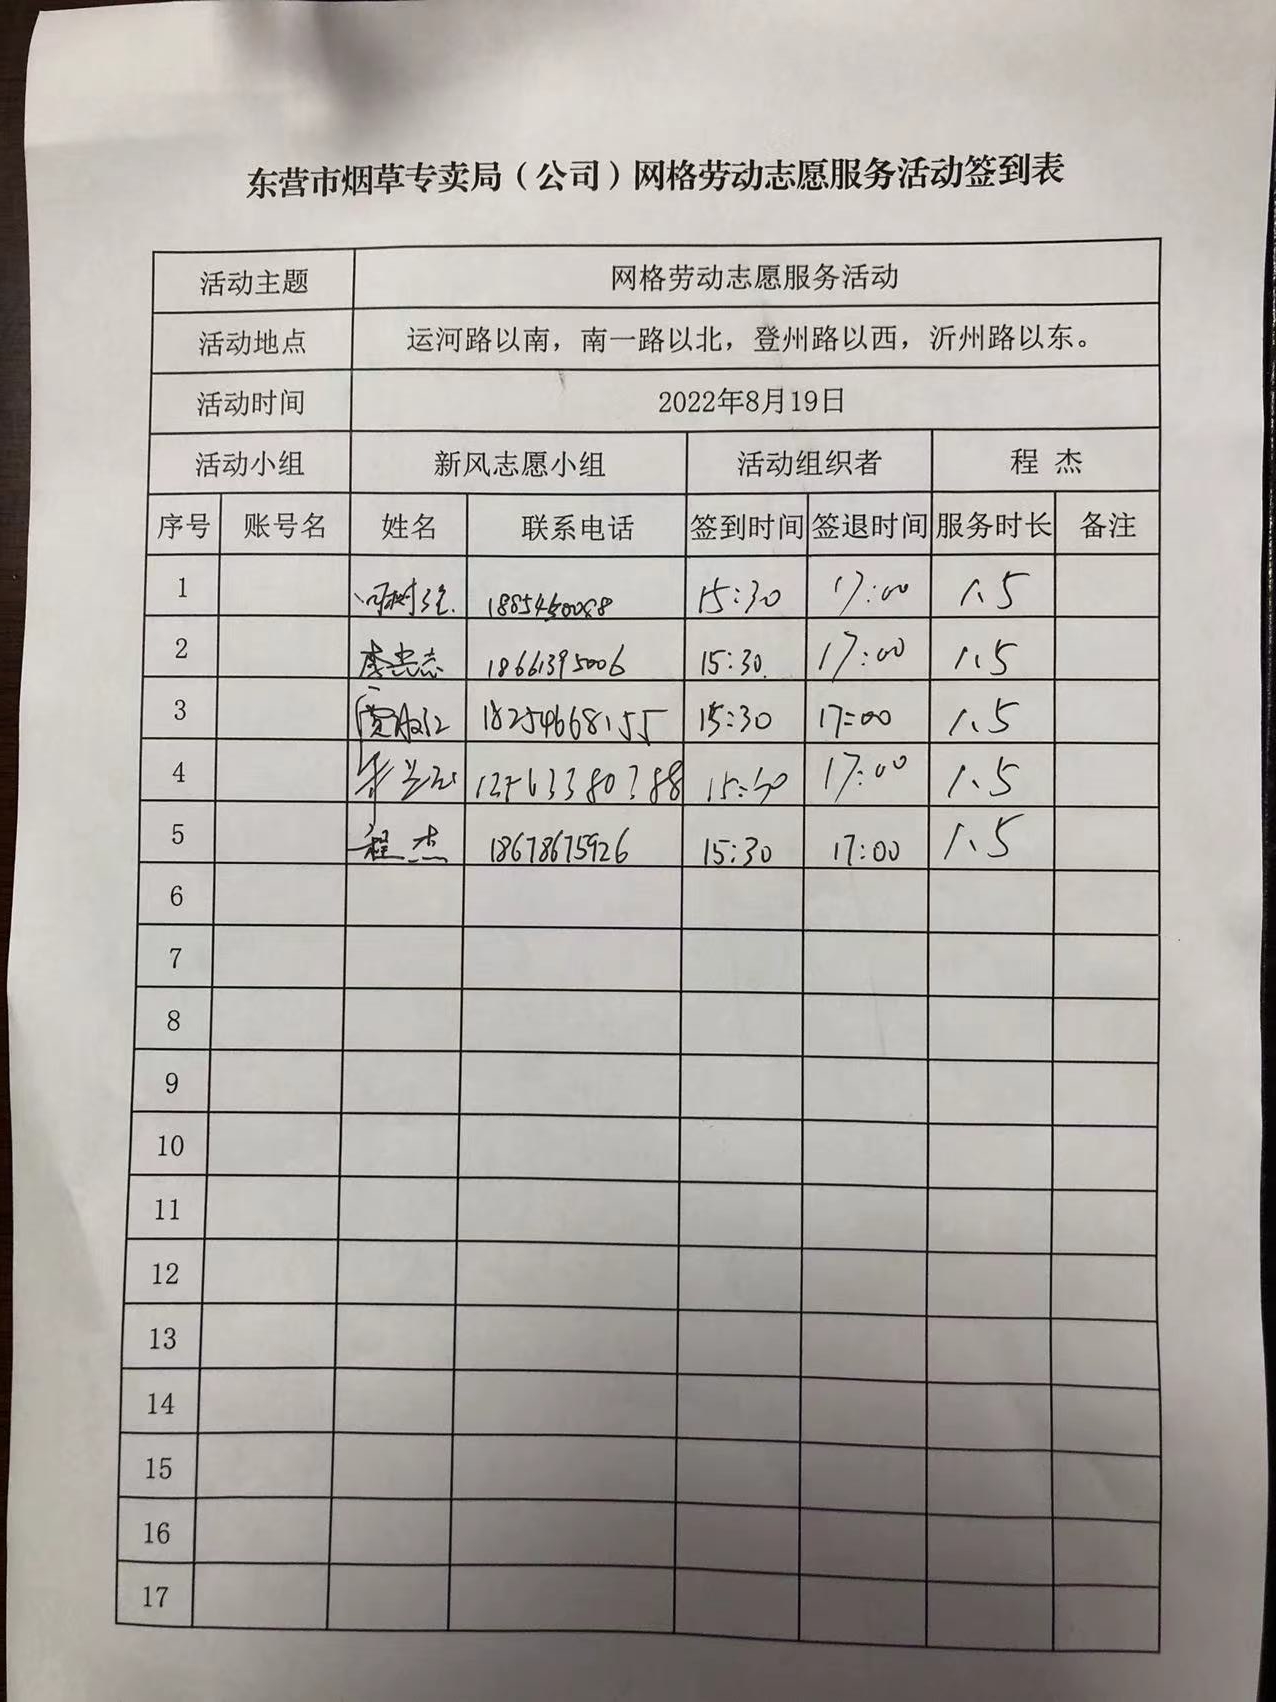 东营市烟草专卖局（公司）网格劳动志愿服务活动签到表
活动主题 网格劳动志愿服务活动
活动地点 运河路以南，南一路以北，登州路以西，沂州路以东。
活动时间 2022年8月19日
活动小组 新风志愿小组 活动组织者 程 杰
序号 账号名 姓名 联系电话 签到时间 签退时间 服务时长 备注
1 15:30 17:00 1.5
2 18661395006 15:30 17:00 1.5
3 18254668155 15:30 17:00 1.5
4 15:30 17:00 1.5
5 程杰 18678675926 15:30 17:00 1.5
6
7
8
9
10
11
12
13
14
15
16
17